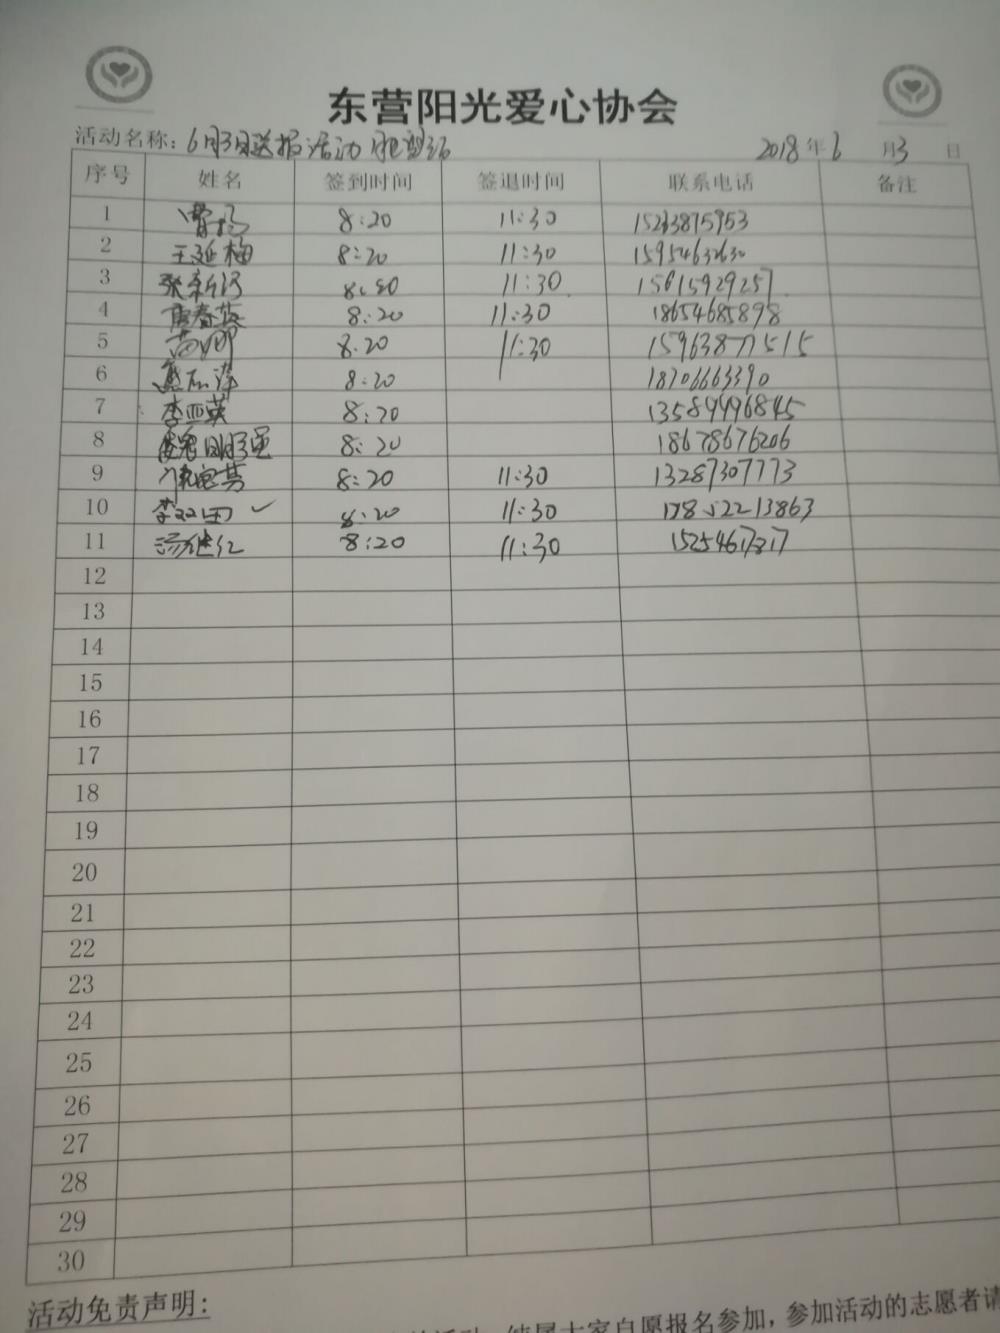 东营阳光爱心协会
活动名称: 6月3日送报活动
2018年6月3日
序号 姓名 签到时间 签退时间 联系电话 备注
1 8:20 11:30
2 王延梅 8:20 11:30 15954632630
3 张新河 8:20 11:30 15615929257
4 唐春英 8:20 11:30 18654685898
5 8:20 11:30 15963877515
6 8:20 18706663390
7 李亚英 8:20 13589996845
8 8:20 18678676206
9 8:20 11:30 13287307773
10 李双田 ✓ 8:20 11:30 17852213863
11 汤继红 8:20 11:30 15254617217
12
13
14
15
16
17
18
19
20
21
22
23
24
25
26
27
28
29
30
活动免责声明:
大家自愿报名参加，参加活动的志愿者请